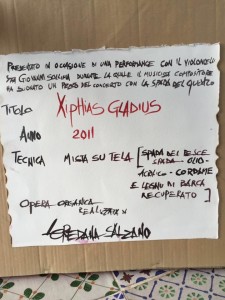 PRESENTATO IN OCCASIONE DI UNA PERFORMANCE CON IL VIOLONCELLO
GIOVANNI SOLLIMA DURANTE LA QUALE IL MUSICISTA COMPOSITORE
HA SUONATO UN PEZZO DEL CONCERTO CON LA SPADA DEL QUADRO
TITOLO XIPHIAS GLADIUS
ANNO 2011
TECNICA MISTA SU TELA [SPADA DEL PESCE
SPADA - OLIO -
ACRILICO - CORDAME
E LEGNI DI BARCA
RECUPERATO]
OPERA ORGANICA
REALIZZATA DA
LOREDANA SALZANO